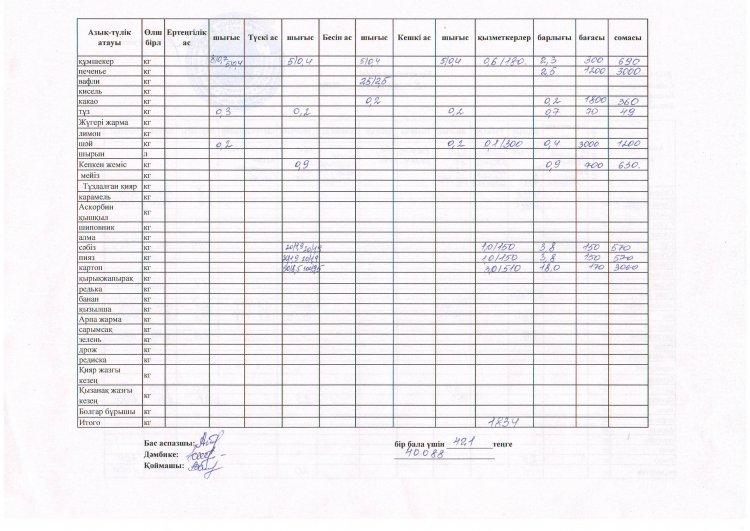 Азық-түлік атауы Өлш бірл Ертеңгілік ас шығыс Түскі ас шығыс Бесін ас шығыс Кешкі ас шығыс қызметкерлер барлығы бағасы сомасы
құмшекер кг 5/0,4 5/0,4 5/0,4 5/0,4 0,6/180 2,3 300 690
печенье кг 2,5 1200 3000
вафли кг 25/2,5
кисель кг
какао кг 0,2 0,2 1800 360
тұз кг 0,3 0,2 0,2 0,7 70 49
Жүгері жарма кг
лимон кг
шәй кг 0,2 0,2 0,1/300 0,4 3000 1200
шырын л
Кепкен жеміс кг 0,9 0,9 700 630
мейіз кг
Тұздалған қияр кг
карамель кг
Аскорбин қышқыл кг
шиповник кг
алма кг
сәбіз кг 20/1,9 20/1,9 1,0/150 3,8 150 570
пияз кг 20/1,9 20/1,9 1,0/150 3,8 150 570
картоп кг 3,0/510 18,0 170 3060
қырықжапырақ кг
редька кг
банан кг
қызылша кг
Арпа жарма кг
сарымсақ кг
зелень кг
дрож кг
редиска кг
Қияр жазғы кезең кг
Қызанақ жазғы кезең кг
Болгар бұрышы кг
Итого кг 1234
Бас аспазшы: бір бала үшін 421 теңге
Дәмбике: 40 088
Қоймашы: